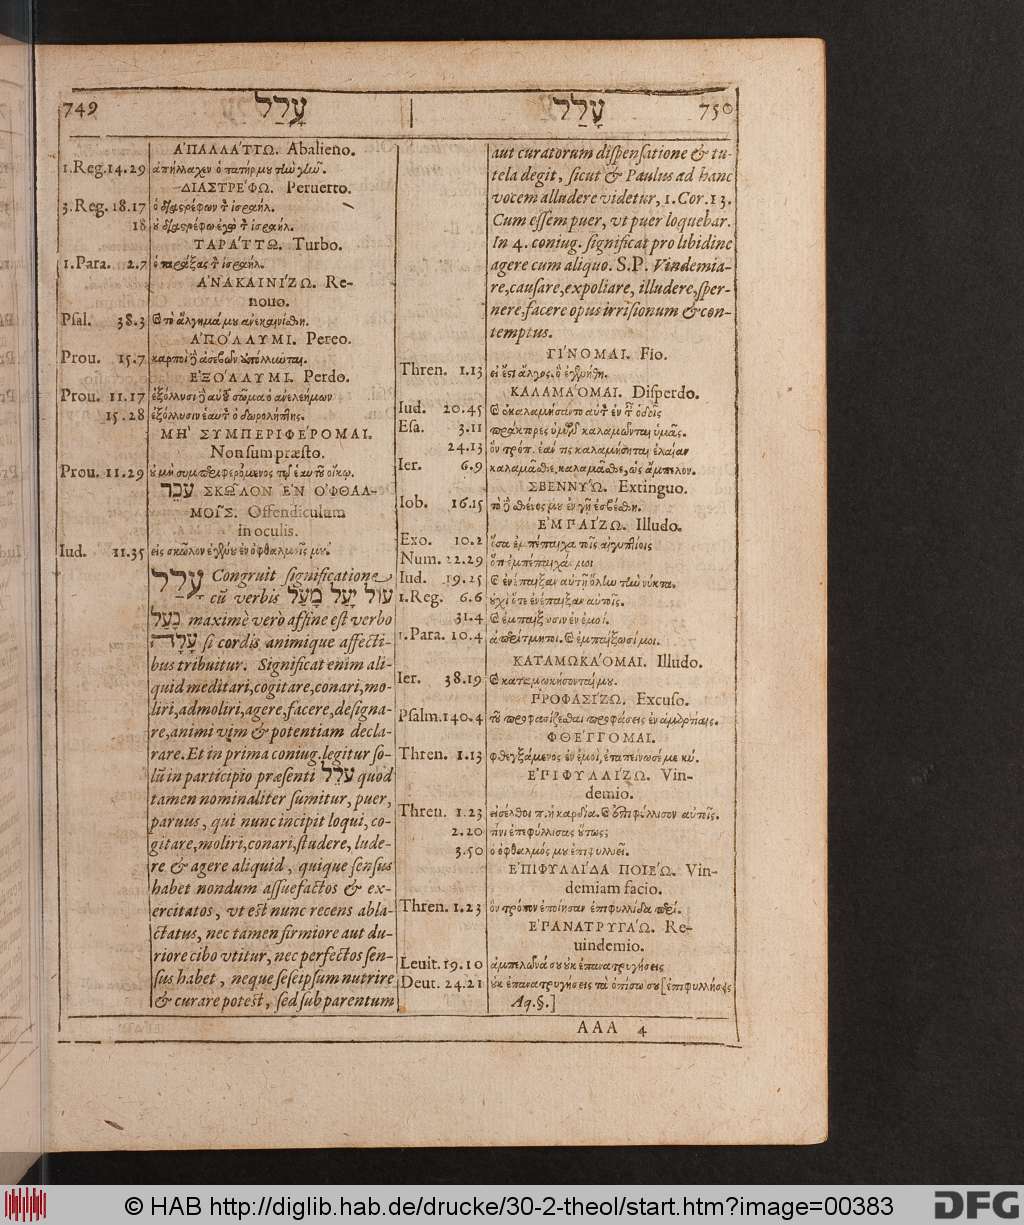 749 עָלַל
ἈΠΑΛΛΆΤΤΩ. Abalieno.
1.Reg.14.29 ἀπήλλαχεν ὁ πατήρ μου τὴν γῆν.
ΔΙΑΣΤΡΈΦΩ. Peruerto.
3.Reg. 18.17 ὁ διαστρέφων τ ἰσραήλ.
18 οὐ διαστρέφω ἐγὼ τ ἰσραήλ.
ΤΑΡΆΤΤΩ. Turbo.
1.Para. 2.7 ὁ ταράξας τ ἰσραήλ.
ἈΝΑΚΑΙΝΊΖΩ. Re-
nouo.
Psal. 38.3 καὶ τὸ ἄλγημά μου ἀνεκαινίσθη.
ἈΠΌΛΛΥΜΙ. Pereo.
Prou. 15.7 καρποὶ ἀσεβῶν
ἘΞΌΛΛΥΜΙ. Perdo.
Prou. 11.17 ἐξόλλυσι σῶμα ὁ ἀνελεήμων
15.28 ἐξόλλυσιν ἑαυτ ὁ δωρολήπτης.
ΜῊ ΣΥΜΠΕΡΙΦΈΡΟΜΑΙ.
Non sum præsto.
Prou. 11.29 ὁ μὴ συμπεριφερόμενος τῷ ἑαυτοῦ οἴκῳ.
עכֵר ΣΚΩ͂ΛΟΝ ἘΝ ὈΦΘΑΛ-
ΜΟΙ͂Σ. Offendiculum
in oculis.
Iud. 11.35 εἰς σκῶλον ἐγένου ἐν ὀφθαλμοῖς μου
עָלַל Congruit significatione
cū verbis עוּל יָעַל מָעַל
בָּעַל maximè verò affine est verbo
עָלָה si cordis animique affecti-
bus tribuitur. Significat enim ali-
quid meditari,cogitare,conari,mo-
liri,admoliri,agere,facere,designa-
re,animi vim & potentiam decla-
rare.Et in prima coniug.legitur so-
lū in participio præsenti עלֵל quod
tamen nominaliter sumitur, puer,
paruus, qui nunc incipit loqui, co-
gitare,moliri,conari,studere, lude-
re & agere aliquid, quique sensus
habet nondum assuefactos & ex-
ercitatos, vt est nunc recens abla-
ctatus, nec tamen firmiore aut du-
riore cibo vtitur, nec perfectos sen-
sus habet, neque seseipsum nutrire
& curare potest, sed sub parentum
עָלַל 750
aut curatorum dispensatione & tu-
tela degit, sicut & Paulus ad hanc
vocem alludere videtur, 1.Cor.13.
Cum essem puer, vt puer loquebar.
In 4. coniug. significat pro libidine
agere cum aliquo. S.P. Vindemia-
re,causare,expoliare, illudere,sper-
nere,facere opus irrisionum & con-
temptus.
ΓΊΝΟΜΑΙ. Fio.
Thren. 1.13 εἰ ἔστι ἄλγος. ὃ ἐγενήθη.
ΚΑΛΑΜΆΟΜΑΙ. Disperdo.
Iud. 20.45 καὶ ἐκαλαμήσαντο αὐτ ἐν τ ὁδοῖς
Esa. 3.11 πράκτορες ὑμῶν καλαμῶνται ὑμᾶς.
24.13 ὃν τρόπ. ἐάν τις καλαμήσηται ἐλαίαν
Ier. 6.9 καλαμᾶσθε, καλαμᾶσθε, ὡς ἄμπελον.
ΣΒΕΝΝΎΩ. Extinguo.
Iob. 16.15 τὸ σθένος μου ἐν γῇ ἐσβέσθη.
ἘΜΠΑΊΖΩ. Illudo.
Exo. 10.2 ὅσα ἐμπέπαιχα τοῖς αἰγυπτίοις
Num. 22.29 ὅτι ἐμπέπαιχάς μοι
Iud. 19.25 καὶ ἐνέπαιξαν αὐτῇ ὅλην τὴν νύκτα.
1.Reg. 6.6 οὐχὶ ὅτε ἐνέπαιξαν αὐτοῖς.
31.4 καὶ ἐμπαίξουσιν ἐν ἐμοί.
1.Para. 10.4 ἀπερίτμητοι. καὶ ἐμπαίξωσί μοι.
ΚΑΤΑΜΩΚΆΟΜΑΙ. Illudo.
Ier. 38.19 καὶ καταμωκήσονταί μου.
ΠΡΟΦΑΣΊΖΩ. Excuso.
Psalm.140.4 τοῦ προφασίζεσθαι προφάσεις ἐν ἁμαρτίαις.
ΦΘΈΓΓΟΜΑΙ.
Thren. 1.13 φθεγξάμενος ἐν ἐμοὶ, ἐταπείνωσέ με κύ.
ἘΠΙΦΥΛΛΊΖΩ. Vin-
demio.
Thren. 1.23 εἰσέλθοι π. ἡ κακία. καὶ ἐπιφύλλισον αὐτοῖς.
2.20 τίνι ἐπεφύλλισας οὕτως;
3.50 ὁ ὀφθαλμός μου ἐπιφυλλιεῖ.
ἘΠΙΦΥΛΛΊΔΑ ΠΟΙΈΩ. Vin-
demiam facio.
Thren. 1.23 ὃν τρόπον ἐποίησαν ἐπιφυλλίδα περί.
ἘΠΑΝΑΤΡΥΓΆΩ. Re-
uindemio.
Leuit. 19.10 ἀμπελῶνά σου οὐκ ἐπανατρυγήσεις
Deut. 24.21 οὐκ ἐπανατρυγήσεις τὰ ὀπίσω σου [ἐπιφυλλήσεις
Aq.§.]
AAA 4
© HAB http://diglib.hab.de/drucke/30-2-theol/start.htm?image=00383
DFG